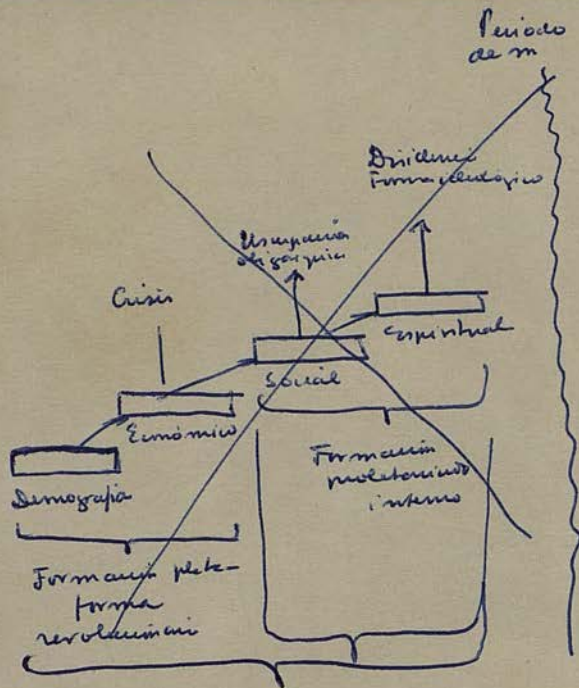 Periodo
de m
Disidencia
Forma ideológico
Usurpación
oligárquica
Crisis
Espiritual
Social
Económico
Demografía
Formación
proletariado
interno
Formación plata-
forma
revolucionari